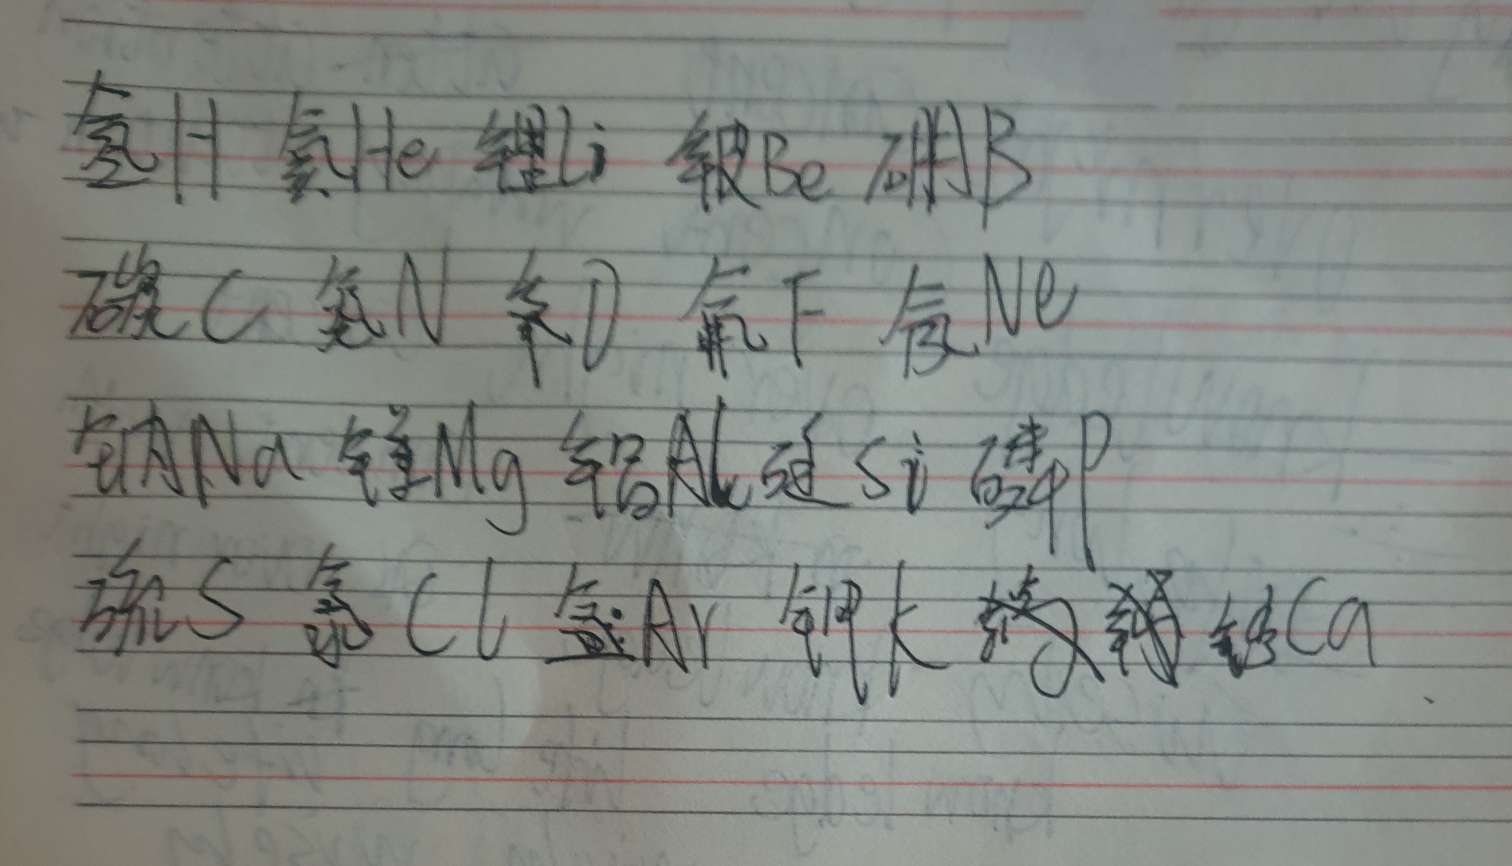 氢H 氦He 锂Li 铍Be 硼B
碳C 氮N 氧O 氟F 氖Ne
钠Na 镁Mg 铝Al 硅Si 磷P
硫S 氯Cl 氩Ar 钾K 钙Ca